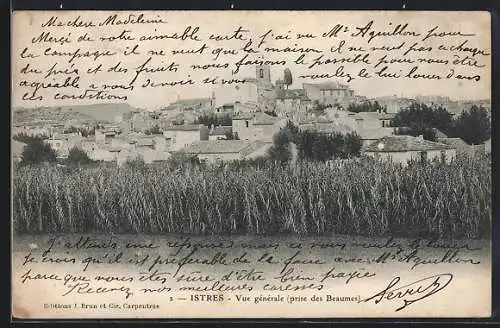 Ma chère Madeleine
Merci de votre aimable carte, j'ai vu Mr Aguillon pour
la campagne il ne veut que la maison il ne veut pas en charge
du prix et des fruits nous ferons le possible pour vous
agréable à tous nous savoir si voulez le lui louer dans
ces conditions
J'attends une réponse mais si vous voulez louer
je crois qu'il est préférable de la faire avec Mr Aguillon
parce que nous serions sûre d'être bien payé
Recevez nos meilleures caresses
2 — ISTRES - Vue générale (prise des Beaumes)
Serres
Editions J. Brun et Cie, Carpentras